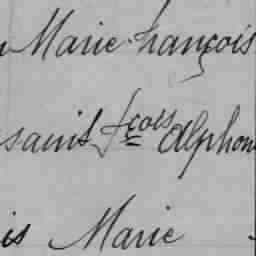 Marie françois
saint fçois Alphon
is Marie